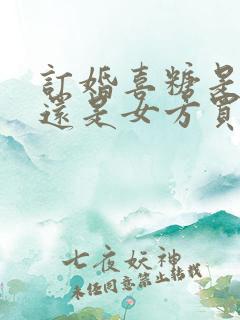 訂婚喜糖是
還是女方買
七夜妖神
未经同意禁止转载